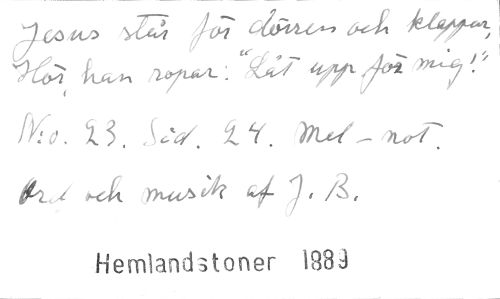 Jesus står för dörren och klappar,
Hör, han ropar: "Låt upp för mig!"
N:o. 23. Sid. 24. Mel-not.
Ord och musik af J. B.
Hemlandstoner 1889